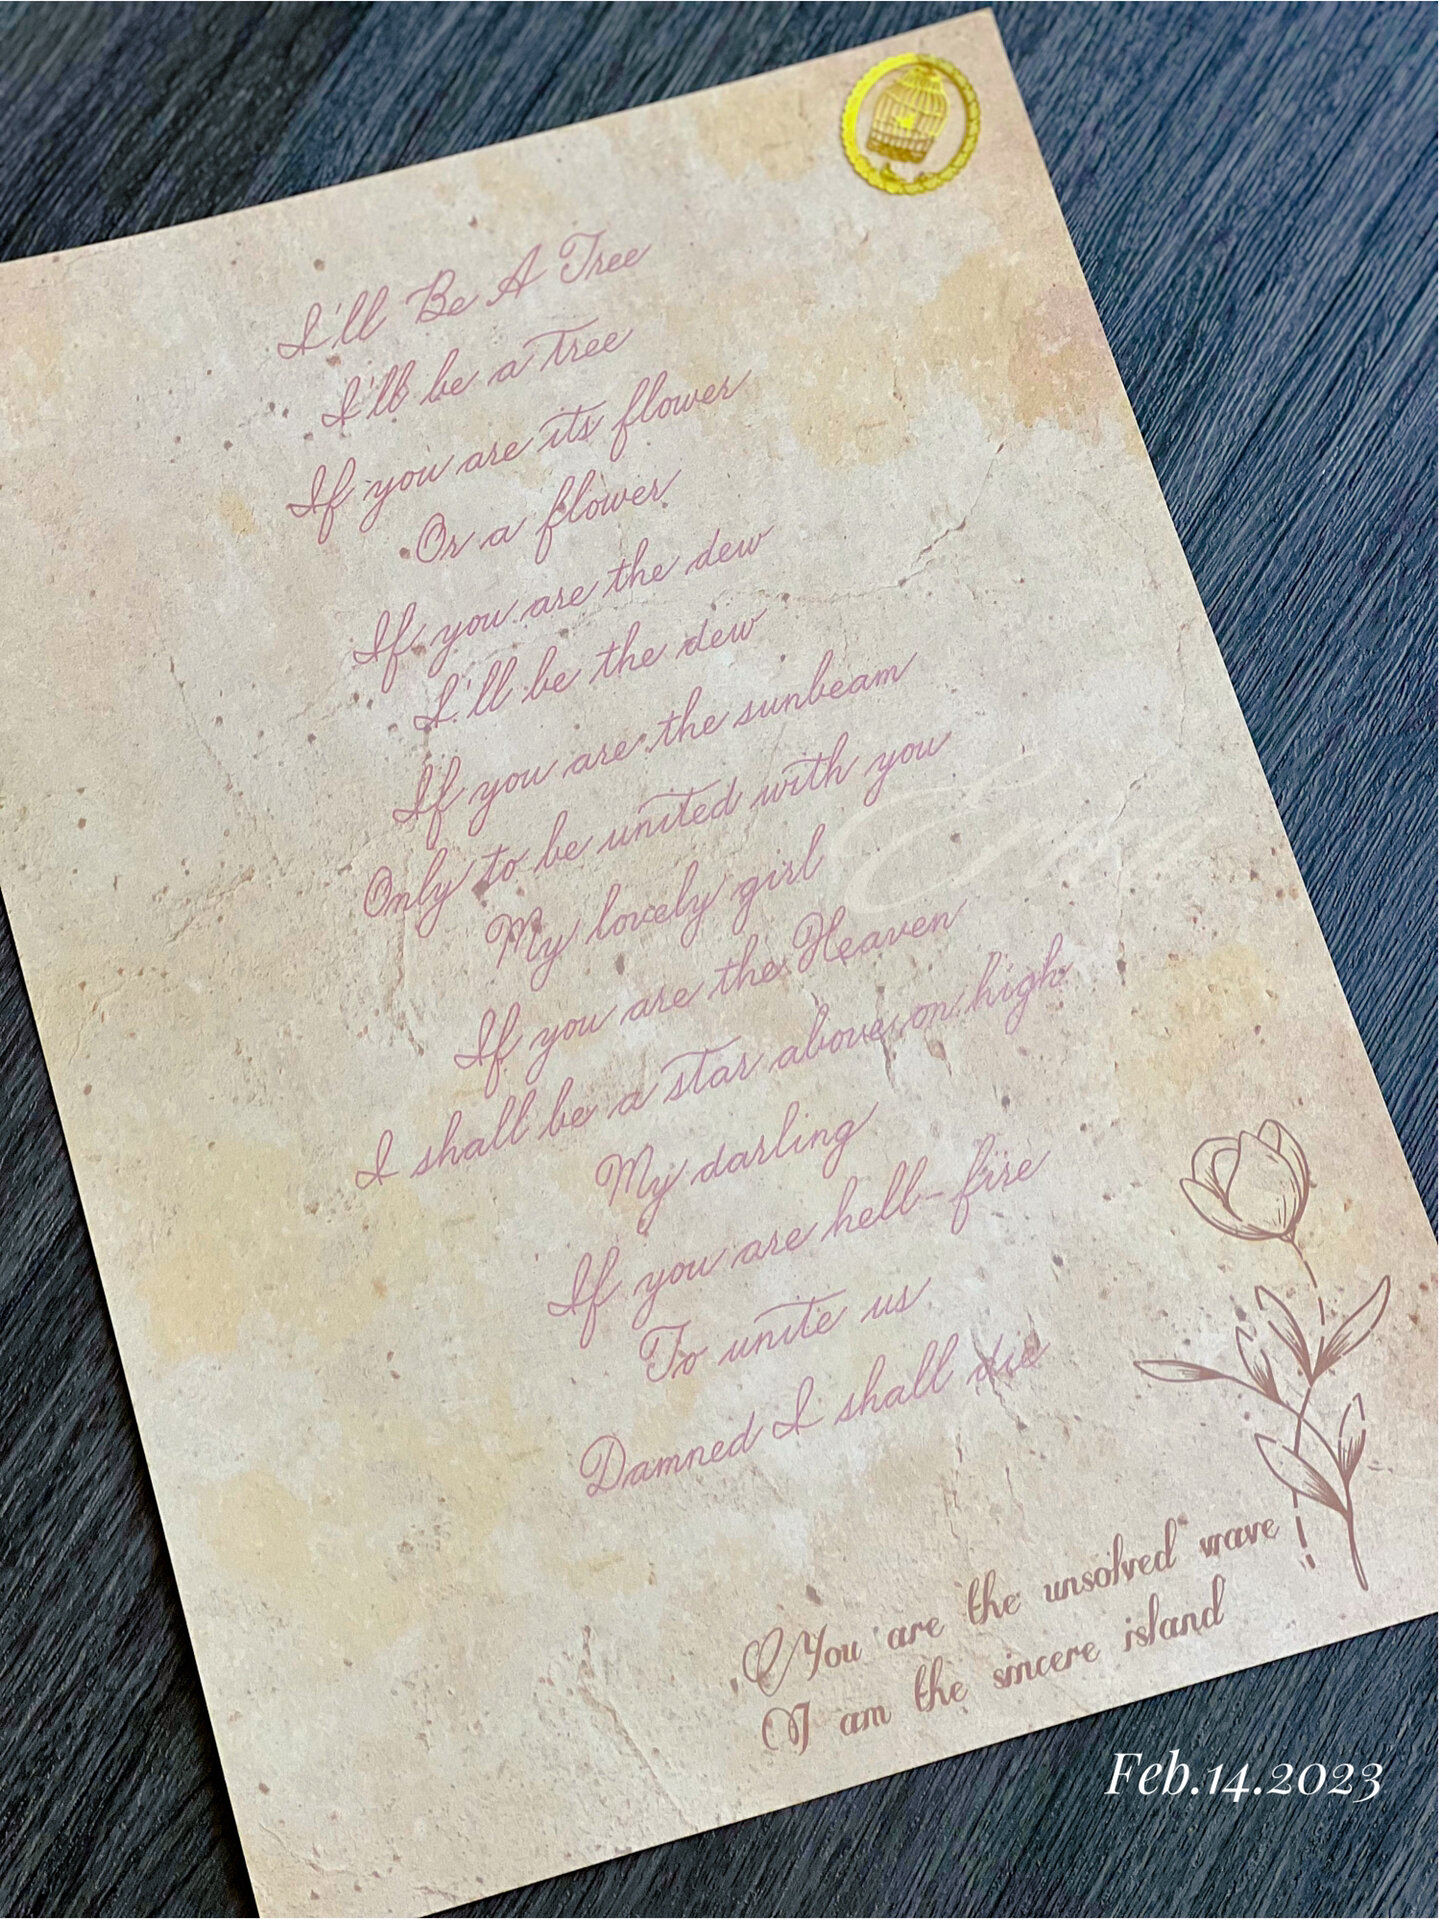 I'll Be A Tree
I'll be a tree
If you are its flower
Or a flower
If you are the dew
I'll be the dew
If you are the sunbeam
Only to be united with you
My lovely girl
If you are the Heaven
I shall be a star above on high
My darling
If you are hell-fire
To unite us
Damned I shall die
You are the unsolved wave
I am the sincere island
Feb.14.2023